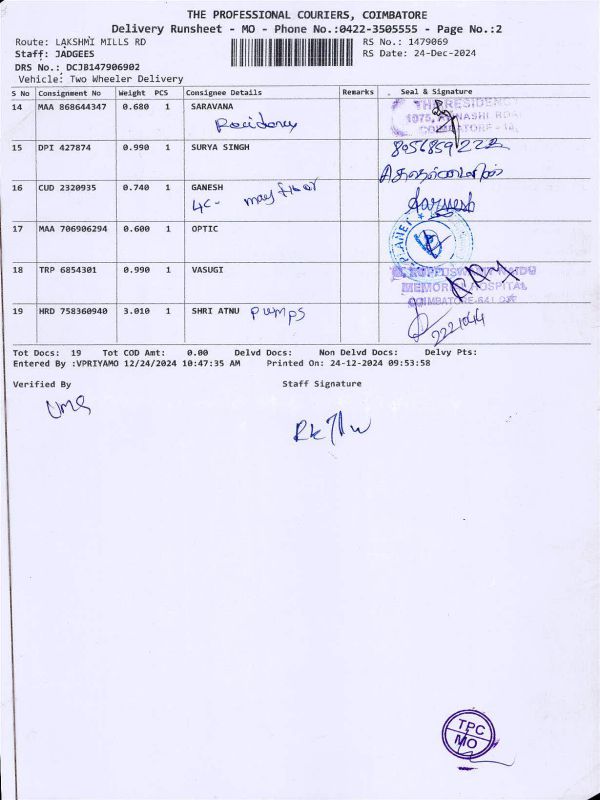 THE PROFESSIONAL COURIERS, COIMBATORE
Delivery Runsheet - MO - Phone No.:0422-3505555 - Page No.:2
Route: LAKSHMI MILLS RD RS No.: 1479069
Staff: JADGEES RS Date: 24-Dec-2024
DRS No.: DCJB147906902
Vehicle: Two Wheeler Delivery
S No Consignment No Weight PCS Consignee Details Remarks Seal & Signature
14 MAA 868644347 0.680 1 SARAVANA THE RESIDENCY
Residency 1075, AVINASHI ROAD
COIMBATORE - 18
15 DPI 427874 0.990 1 SURYA SINGH 8056859222
16 CUD 2320935 0.740 1 GANESH
4C-
17 MAA 706906294 0.600 1 OPTIC PLANET
18 TRP 6854301 0.990 1 VASUGI KUPPUSWAMY NAIDU
MEMORIAL HOSPITAL
COIMBATORE-641
19 HRD 758360940 3.010 1 SHRI ATNU pumps
2221044
Tot Docs: 19 Tot COD Amt: 0.00 Delvd Docs: Non Delvd Docs: Delvy Pts:
Entered By :VPRIYAMO 12/24/2024 10:47:35 AM Printed On: 24-12-2024 09:53:58
Verified By Staff Signature
TPC
MO